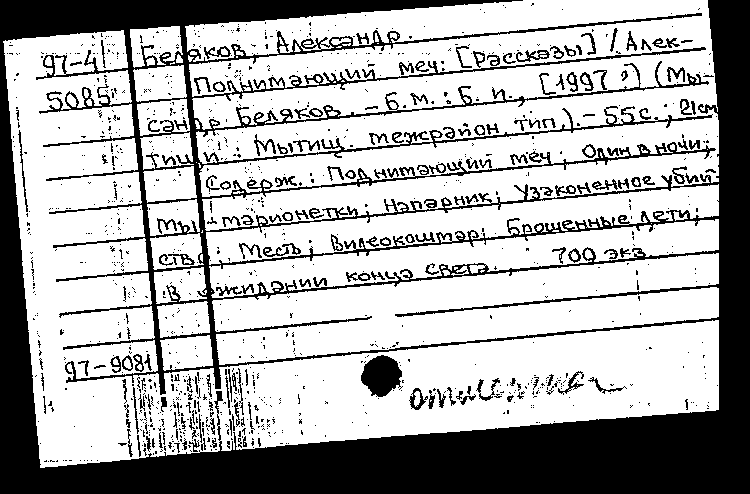 97-4 Беляков, Александр.
5085 Поднимающий меч: [Рассказы] / Алек-
сандр Беляков. - Б.м.: Б. и., [1997?] (Мы-
тищи: Мытищ. межрайон. тип.). - 55с.; 21см
Содерж.: Поднимающий меч; Один в ночи;
Мы - марионетки; Напарник; Узаконенное убий-
ство; Месть; Видеокошмар; Брошенные дети;
В ожидании конца света., 700 экз.
97-9081